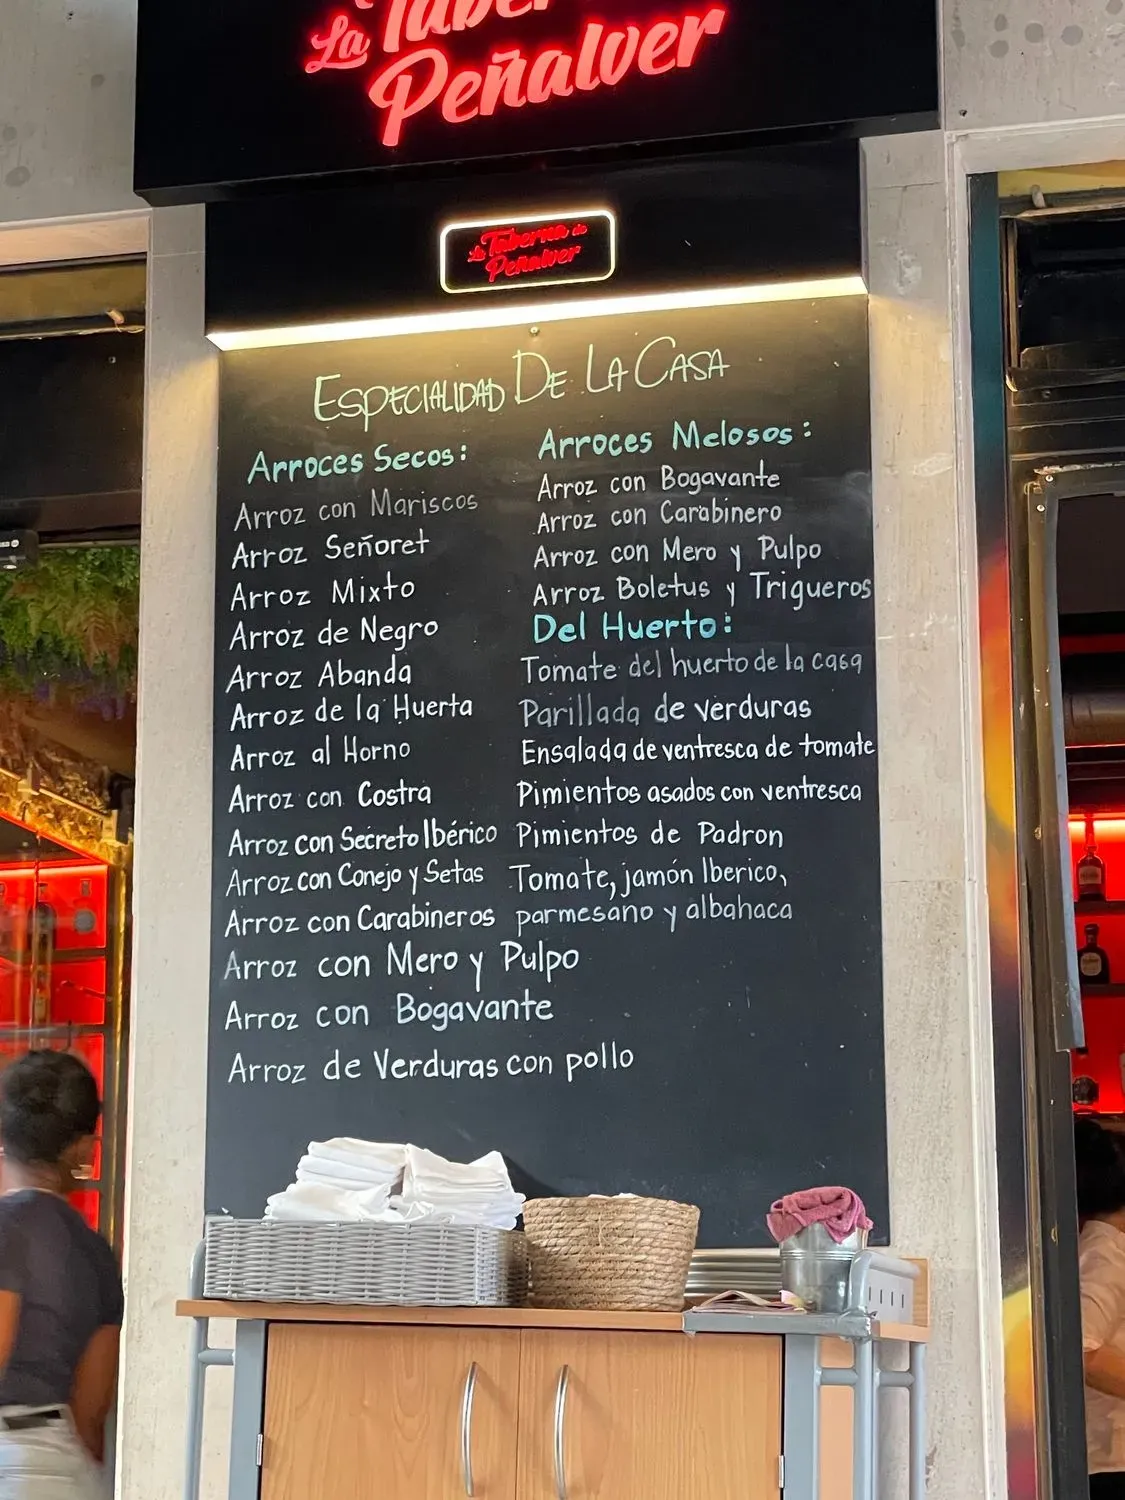 La Taberna
Peñalver
La Taberna de
Peñalver
ESPECIALIDAD DE LA CASA
Arroces Secos:
Arroz con Mariscos
Arroz Señoret
Arroz Mixto
Arroz de Negro
Arroz Abanda
Arroz de la Huerta
Arroz al Horno
Arroz con Costra
Arroz con Secreto Ibérico
Arroz con Conejo y Setas
Arroz con Carabineros
Arroz con Mero y Pulpo
Arroz con Bogavante
Arroz de Verduras con pollo
Arroces Melosos:
Arroz con Bogavante
Arroz con Carabinero
Arroz con Mero y Pulpo
Arroz Boletus y Trigueros
Del Huerto:
Tomate del huerto de la casa
Parillada de verduras
Ensalada de ventresca de tomate
Pimientos asados con ventresca
Pimientos de Padron
Tomate, jamón Iberico,
parmesano y albahaca